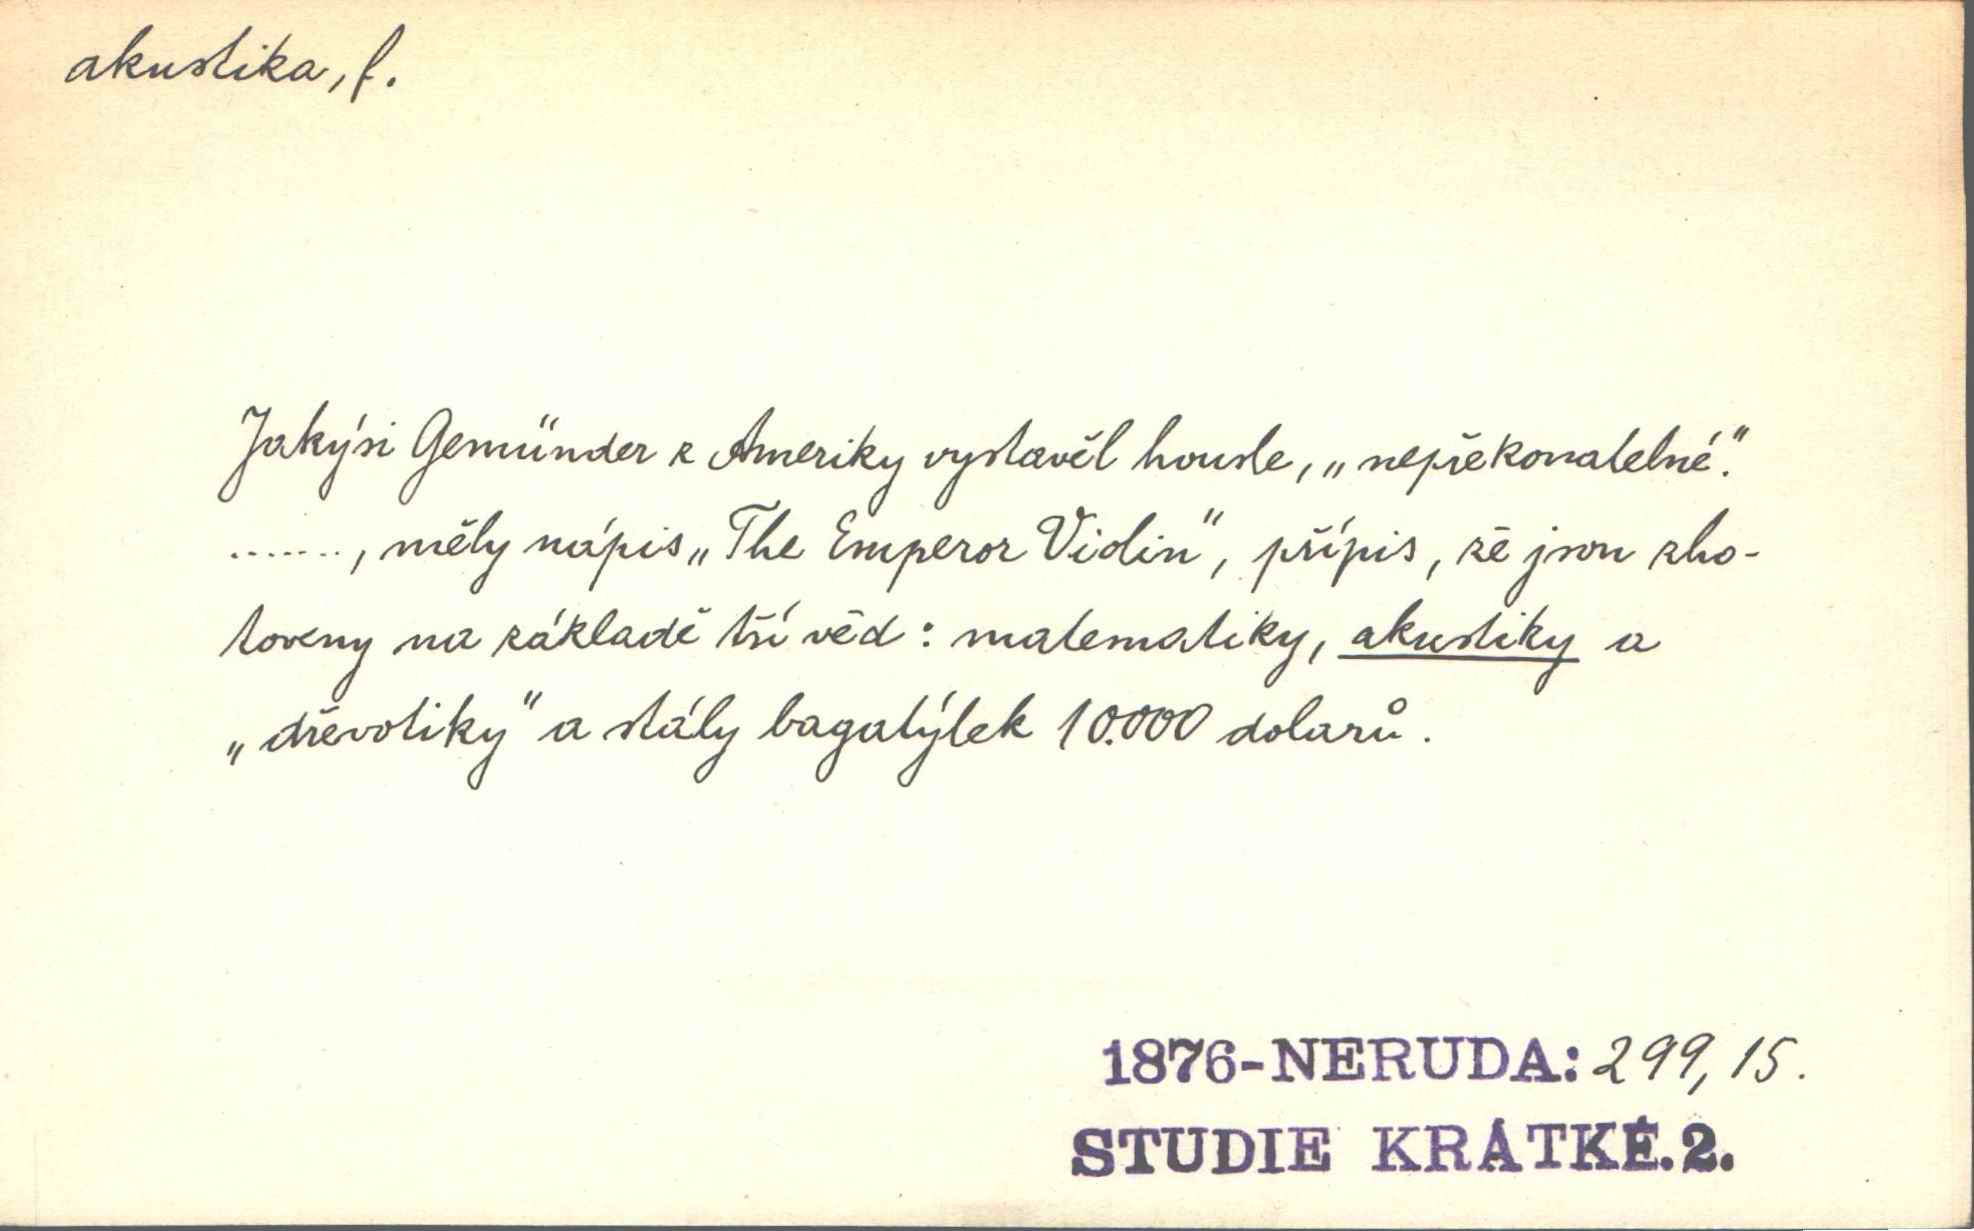 akustika, f.
Jakýsi Gemünder z Ameriky vystavěl housle, „nepřekonatelné."
......., měly nápis „The Emperor Violin", přípis, že jsou zho-
toveny na základě tří věd: matematiky, akustiky a
„dřevotiky" a stály bagatýlek 10.000 dolarů.
1876-NERUDA: 299, 15.
STUDIE KRÁTKÉ.2.